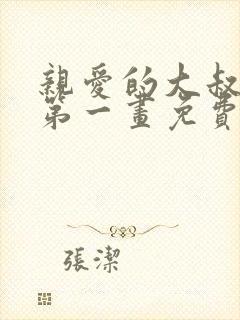 親愛的大叔
第一畫免費
張潔